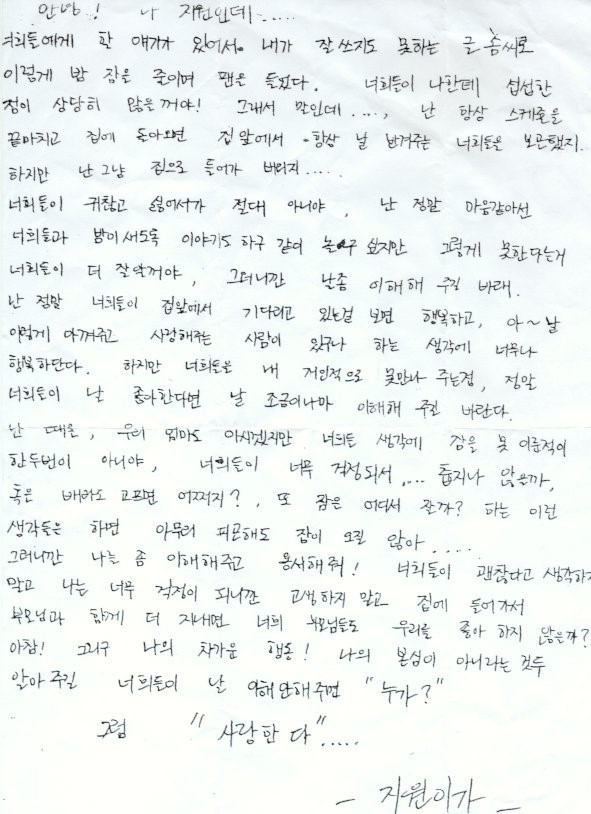 안녕! 나 지원인데.....
너희들에게 할 얘기가 있어서. 내가 잘 쓰지도 못하는 글 솜씨로
이렇게 밤 잠을 줄이며 팬을 들었다. 너희들이 나한테 섭섭한
점이 상당히 많을꺼야! 그래서 말인데...., 난 항상 스케줄을
끝마치고 집에 돌아오면 집앞에서 항상 날 반겨주는 너희들을 보곤했지.
하지만 난 그냥 집으로 들어가 버리지.....
너희들이 귀찮고 싫어서가 절대 아니야, 난 정말 마음같아선
너희들과 밤이새도록 이야기도 하구 같이 놀구 싶지만 그렇게 못한다는거
너희들이 더 잘알꺼야, 그러니깐 날좀 이해해 주길 바래.
난 정말 너희들이 집앞에서 기다리고 있는걸 보면 행복하고, 아~날
이렇게 아껴주고 사랑해주는 사람이 있구나 하는 생각에 너무나
행복하단다. 하지만 너희들을 내 개인적으로 못만나 주는점, 정말
너희들이 날 좋아한다면 날 조금이나마 이해해 주길 바란다.
난 때론, 우리 엄마도 아시겠지만 너희들 생각에 잠을 못 이룬적이
한두번이 아니야, 너희들이 너무 걱정되서.... 춥지나 않은까,
혹은 배라도 고프면 어쩌지?, 또 잠은 어디서 잘까? 하는 이런
생각들을 하면 아무리 피곤해도 잠이 오질 않아.....
그러니깐 나를 좀 이해해주고 용서해줘! 너희들이 괜찮다고 생각하지
말고 나는 너무 걱정이 되니깐 고생하지 말고 집에 들어가서
부모님과 함께 더 지내면 너희 부모님들도 우리를 좋아 하지 않은까?
아참! 그리구 나의 차가운 행동! 나의 본심이 아니라는 것두
알아 주길 너희들이 날 이해안해주면 "누가?"
그럼 "사랑한다".....
- 지원이가 -